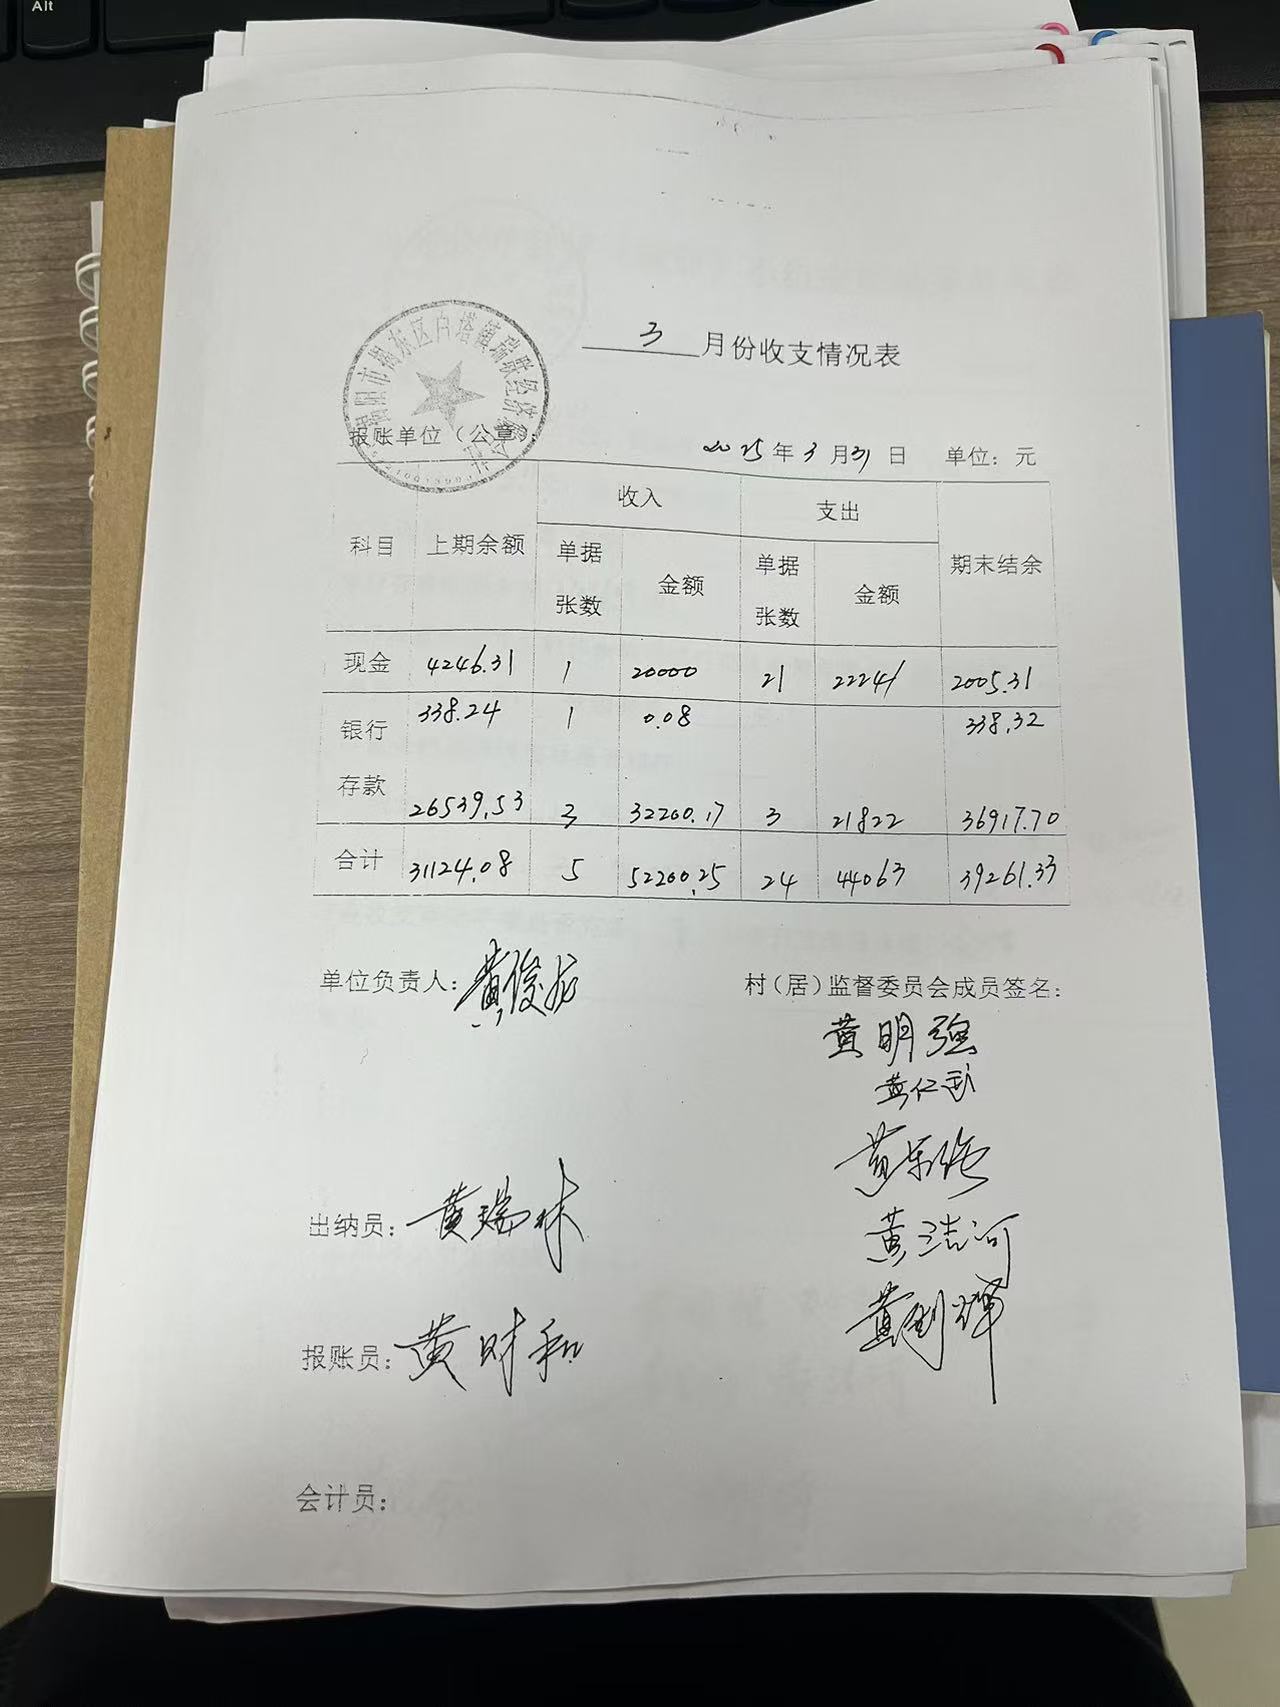 Alt
揭阳市揭东区白塔镇瑞联经济联合社
3月份收支情况表
报账单位（公章）：
2025年3月31日 单位：元
科目 上期余额 收入 支出 期末结余
单据张数 金额 单据张数 金额
现金 4246.31 1 20000 21 22241 2005.31
银行存款 338.24 1 0.08 338.32
26539.53 3 32200.17 3 21822 36917.70
合计 31124.08 5 52200.25 24 44063 39261.33
单位负责人：黄俊龙
村（居）监督委员会成员签名：
黄明强
黄仁武
黄洁河
出纳员：黄瑞林
报账员：黄财和
会计员：